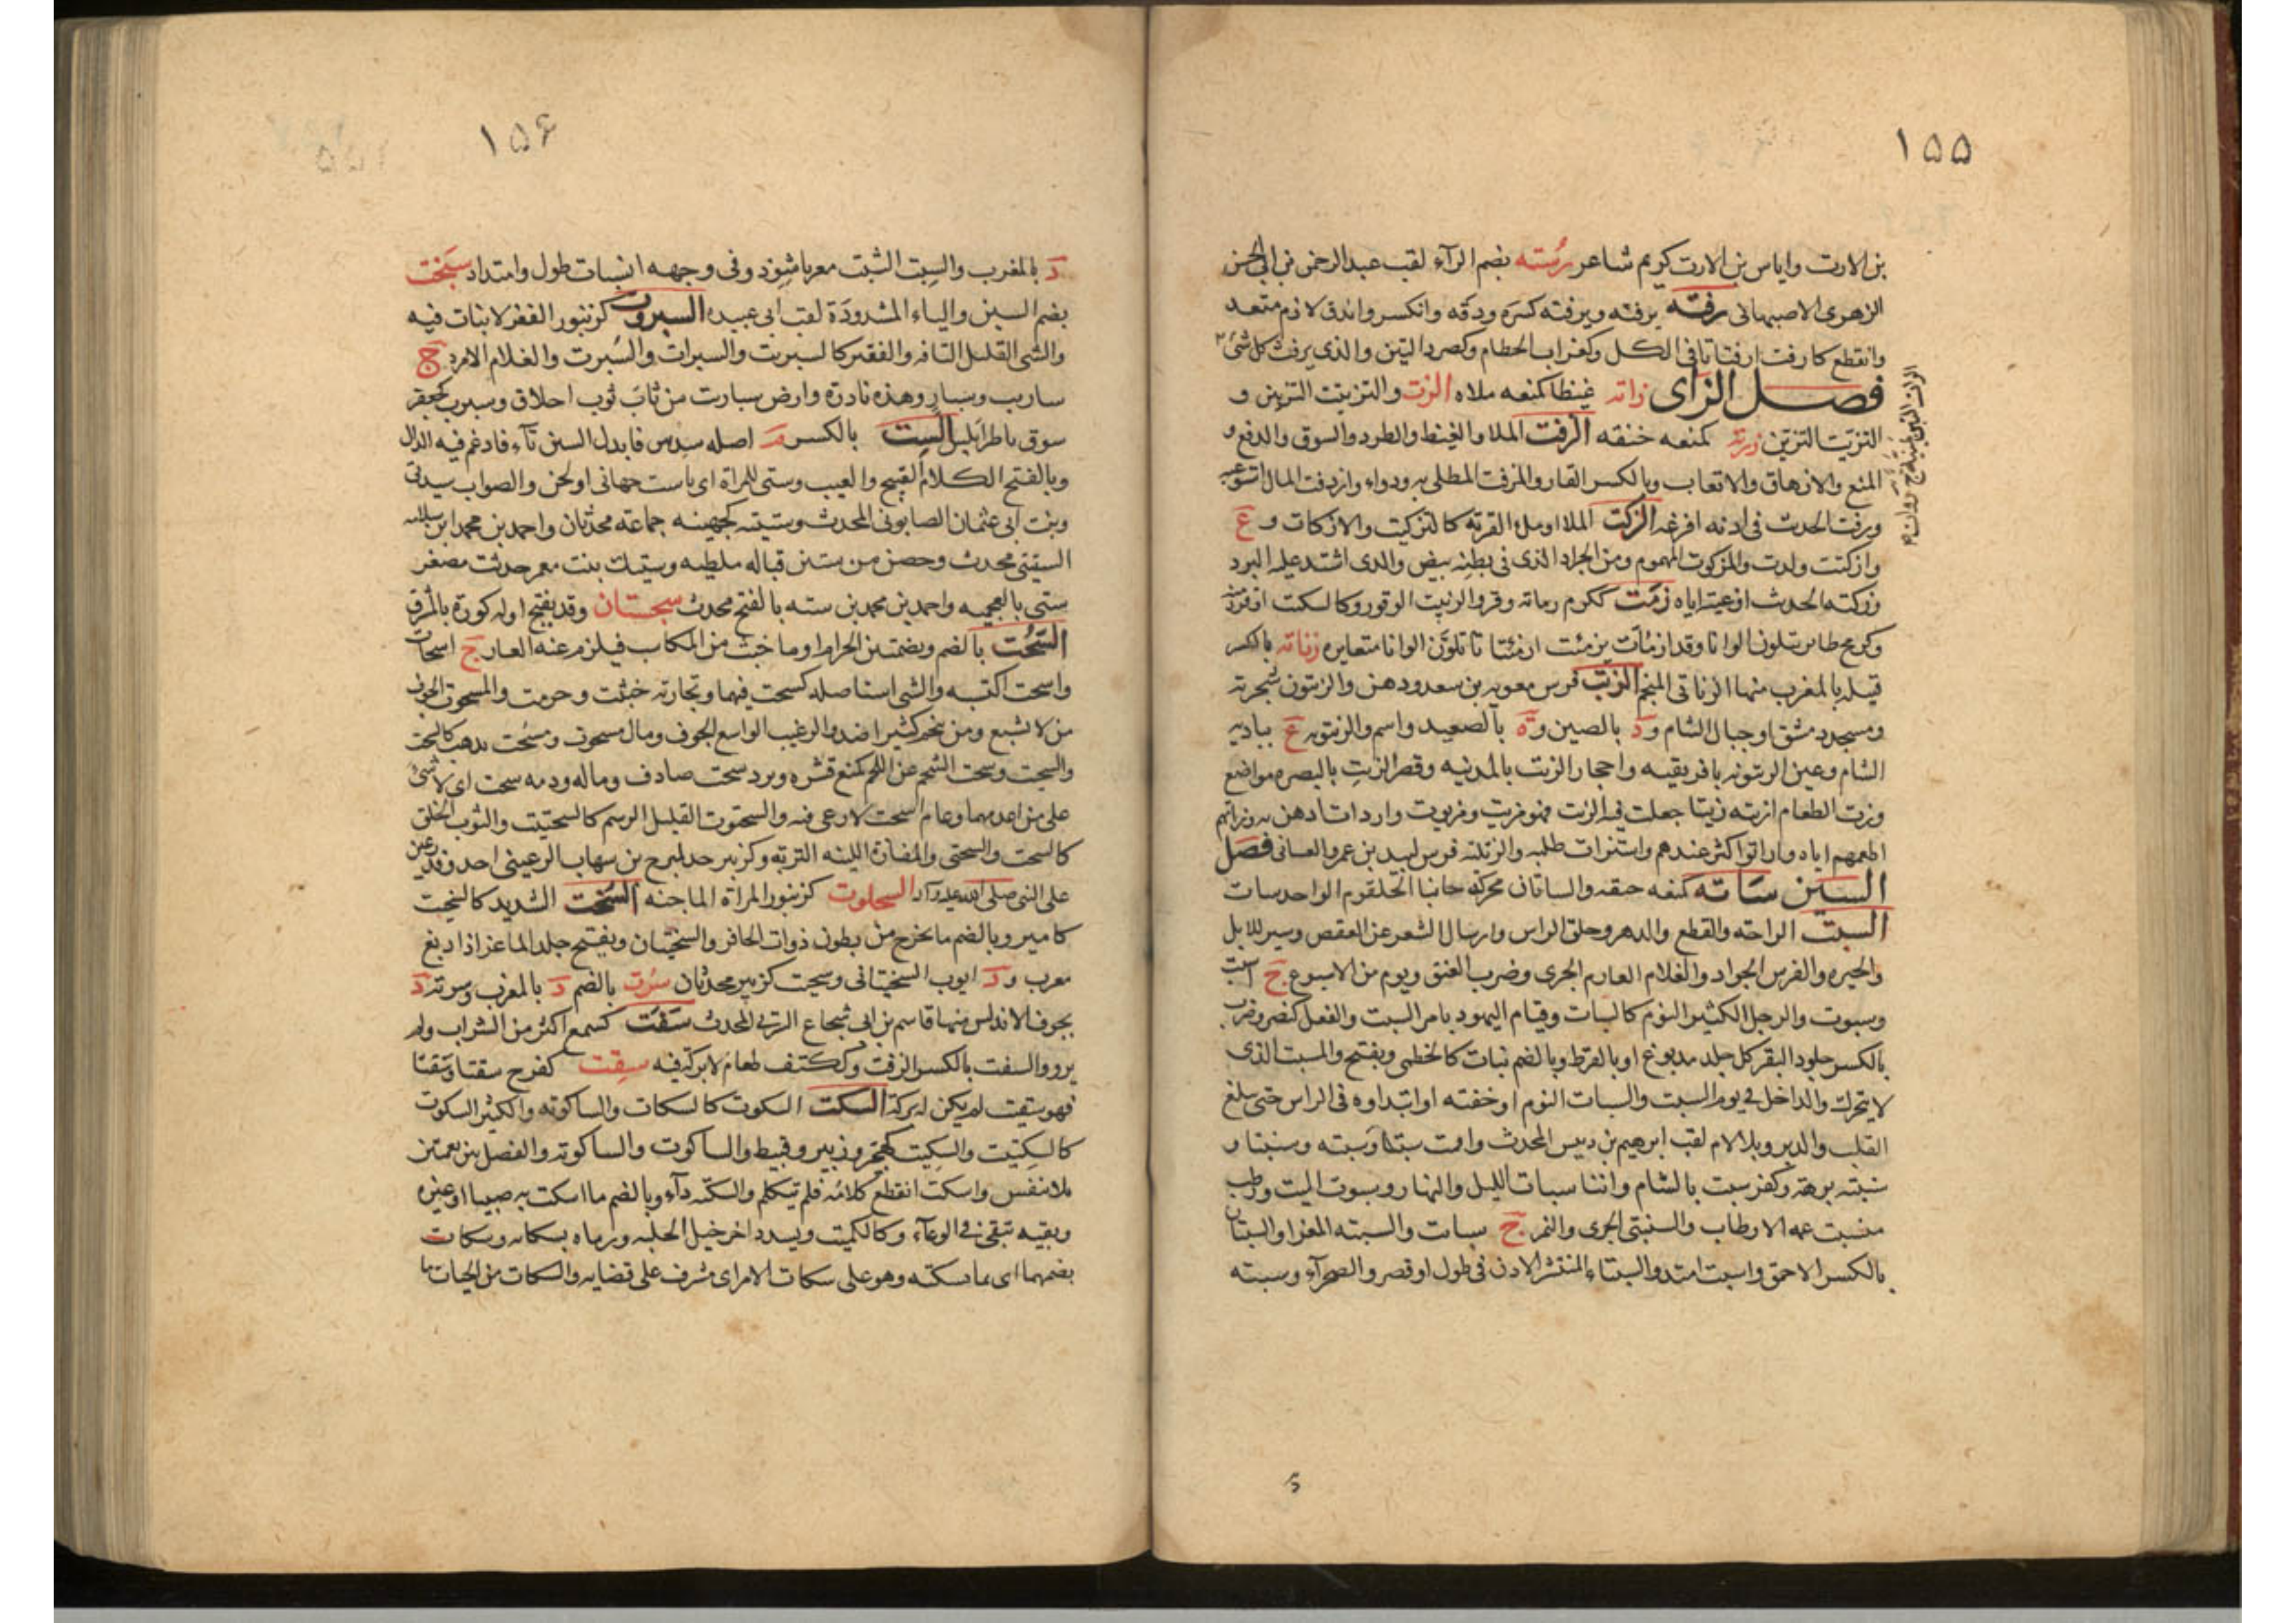 ١٥٥
بن الارت واياس بن الارت كريم شاعر رسته بضم الرآء لقب عبد الرحمن بن ابى الحسن
الزهرى الاصبهانى رفته يرفته ويرفته كسره ودقه وانكسر واندق لازم متعد
وانقطع كارفت ارفتاتا فى الكل وكغراب الحطام وكصرد التبن والذى يرفت كل شئ
فصل الزاى زاته غيظا كمنعه ملاه الزت والتزتيت التزيين و
التزتت التزين زرته كمنعه خنقه الزفت الملا والغيظ والطرد والسوق والدفع و
المنع والازهاق والاتعاب وبالكسر القار والمزفت المطلى به ودواء وازدفت المال استوعبه
وزفت الحديث فى اذنه افرغه الزكت الملا او ملء القربة كالتزكيت والازكات و ع
وازكتت ولدت والمزكوت المهموم ومن الجراد الذى فى بطنه بيض والذى اشتد عليه البرد
وزكته الحديث اوعيته اياه زمت ككرم زماتة وقر والزميت الوقور وكالسكت اوقر منه
وكزمج طاير يتلون الوانا وقد ازمأت يزمئت ازمئتاتا تلون الوانا متغايره زناته بالكسر
قبيله بالمغرب منها الزناتى المنجم الزيت فرس معويه بن سعد ودهن والزيتون شجرته
ومسجد دمشق او جبال الشام و د بالصين و ة بالصعيد واسم والزيتونه ع بباديه
الشام وعين الزيتونه بافريقيه واحجار الزيت بالمدينه وقصر الزيت بالبصره مواضع
وزت الطعام ازيته زيتا جعلت فيه الزيت فهو مزيت ومزيوت وازدات ادهن به وزاتهم
اطعمهم اياه وازاتوا كثر عندهم واستزات طلبه والزيتيه فرس لبيد بن عمرو الغسانى فصل
السين ساته كمنعه خنقه والساتان محركه جانبا الحلقوم الواحد سات
السبت الراحه والقطع والدهر وحلق الراس وارسال الشعر عن العقص وسير للابل
والحيره والفرس الجواد والغلام العارم الجرى وضرب العنق ويوم من الاسبوع ج اسبت
وسبوت والرجل الكثير النوم كالسبات وقيام اليهود بامر السبت والفعل كنصر وضرب
بالكسر جلود البقر كل جلد مدبوغ او بالقرظ وبالضم نبات كالخطمى ويفتح والمسبت الذى
لا يتحرك والداخل فى يوم السبت والسبات النوم او خفته او ابتداوه فى الراس حتى يبلغ
القلب والدهر وبلا لام لقب ابرهيم بن دبيس المحدث واقمت سبتا وسبته وسنبتا و
سنبته برهة وكفر سبت بالشام وابنا سبات الليل والنهار وسبوت اليت ورطب
منسبت عمه الارطاب والسبنتى الجرى والنمر ج سبانت والسبته المعزا والسبتان
بالكسر الاحمق واسبت امتد والسبتاء المنتشر الاذن فى طول او قصر والصحرآء وسبته
١٥٦
د بالمغرب والسبت الشبت معربا شوذ وفى وجهه انسبات طول وامتداد سبخت
بضم السين والياء المشدودة لقب ابى عبيده السبروت كزنبور القفر لا نبات فيه
والشى القليل التافه والفقير كالسبريت والسبرات والسبرت والغلام الامرد ج
سباريت وسبار وهذه نادرة وارض سباريت من باب ثوب اخلاق وسبرت كجعفر
سوق باطرابلس الست بالكسر م اصله سدس فابدل السين تآء فادغم فيه الدال
وبالفتح الكلام القبيح والعيب وستى للمراة اى يا ست جهاتى او لحن والصواب سيدتى
وبنت ابى عثمان الصابونى المحدث وستيته كجهينه جماعه محدثان واحمد بن محمد ابن سلامه
الستيتى محدث وحصن بن ستين قباله ملطيه وستيك بنت معمر حدثت مصغر
ستى بالعجميه واحمد بن محمد بن سته بالفتح محدث سجستان وقد يفتح اوله كورة بالشرق
السحت بالضم وبضمتين الحرام او ما خبث من المكاسب فيلزم عنه العار ج اسحات
واسحت اكتسبه والشى استاصله كسحت فيهما وتجارته خبثت وحرمت والمسحوت الجوف
من لا يشبع ومن يتخم كثيرا ضد والرغيب الواسع الجوف ومال مسحوت ومسحت مذهب كالسحت
والسحيت وسحت الشحم عن اللحم كمنع قشره وبرد سحت صادق وماله ودمه سحت اى لا شئ
على من اعدمهما وعام اسحت لا رعى فيه والسحتوت القليل الدسم كالسحتيت والثوب الخلق
كالسحت والسحتى والمفازة اللينه التربه وكزبير جد لمبرح بن شهاب الرعينى احد وفد رعين
على النبى صلى الله عليه وآله السحلوت كزنبور المراة الماجنه السخت الشديد كالسخيت
كامير وبالضم ما يخرج من بطون ذوات الحافر والسختيان ويفتح جلد الماعز اذا دبغ
معرب و د ايوب السختيانى وسخيت كزبير محدثان سرت بالضم د بالمغرب وسرته د
بجوف الاندلس منها قاسم بن ابى شجاع السرتى المحدث سفت كسمع اكثر من الشراب ولم
يرو والسفت بالكسر الزفت وككتف طعام لا بركة فيه سقت كفرح سقتا وسقتا
فهو سقت لم يكن له بركة السكت السكوت كالسكات والساكوته والكثير السكوت
كالسكتيت والسكيت كمجير وزبير وقبيط والساكوت والساكوته والفصل بين نغمتين
بلا تنفس واسكت انقطع كلامه فلم يتكلم والسكته دآء وبالضم ما اسكت به صبيا او غيره
وبقيه تبقى فى الوعآء وكالكميت ويشدد اخر خيل الحلبه ورماه بسكاته وسكات
بضمهما اى بما يسكته وهو على سكات الامر اى مشرف على قضايه والسكات من الحيات ما